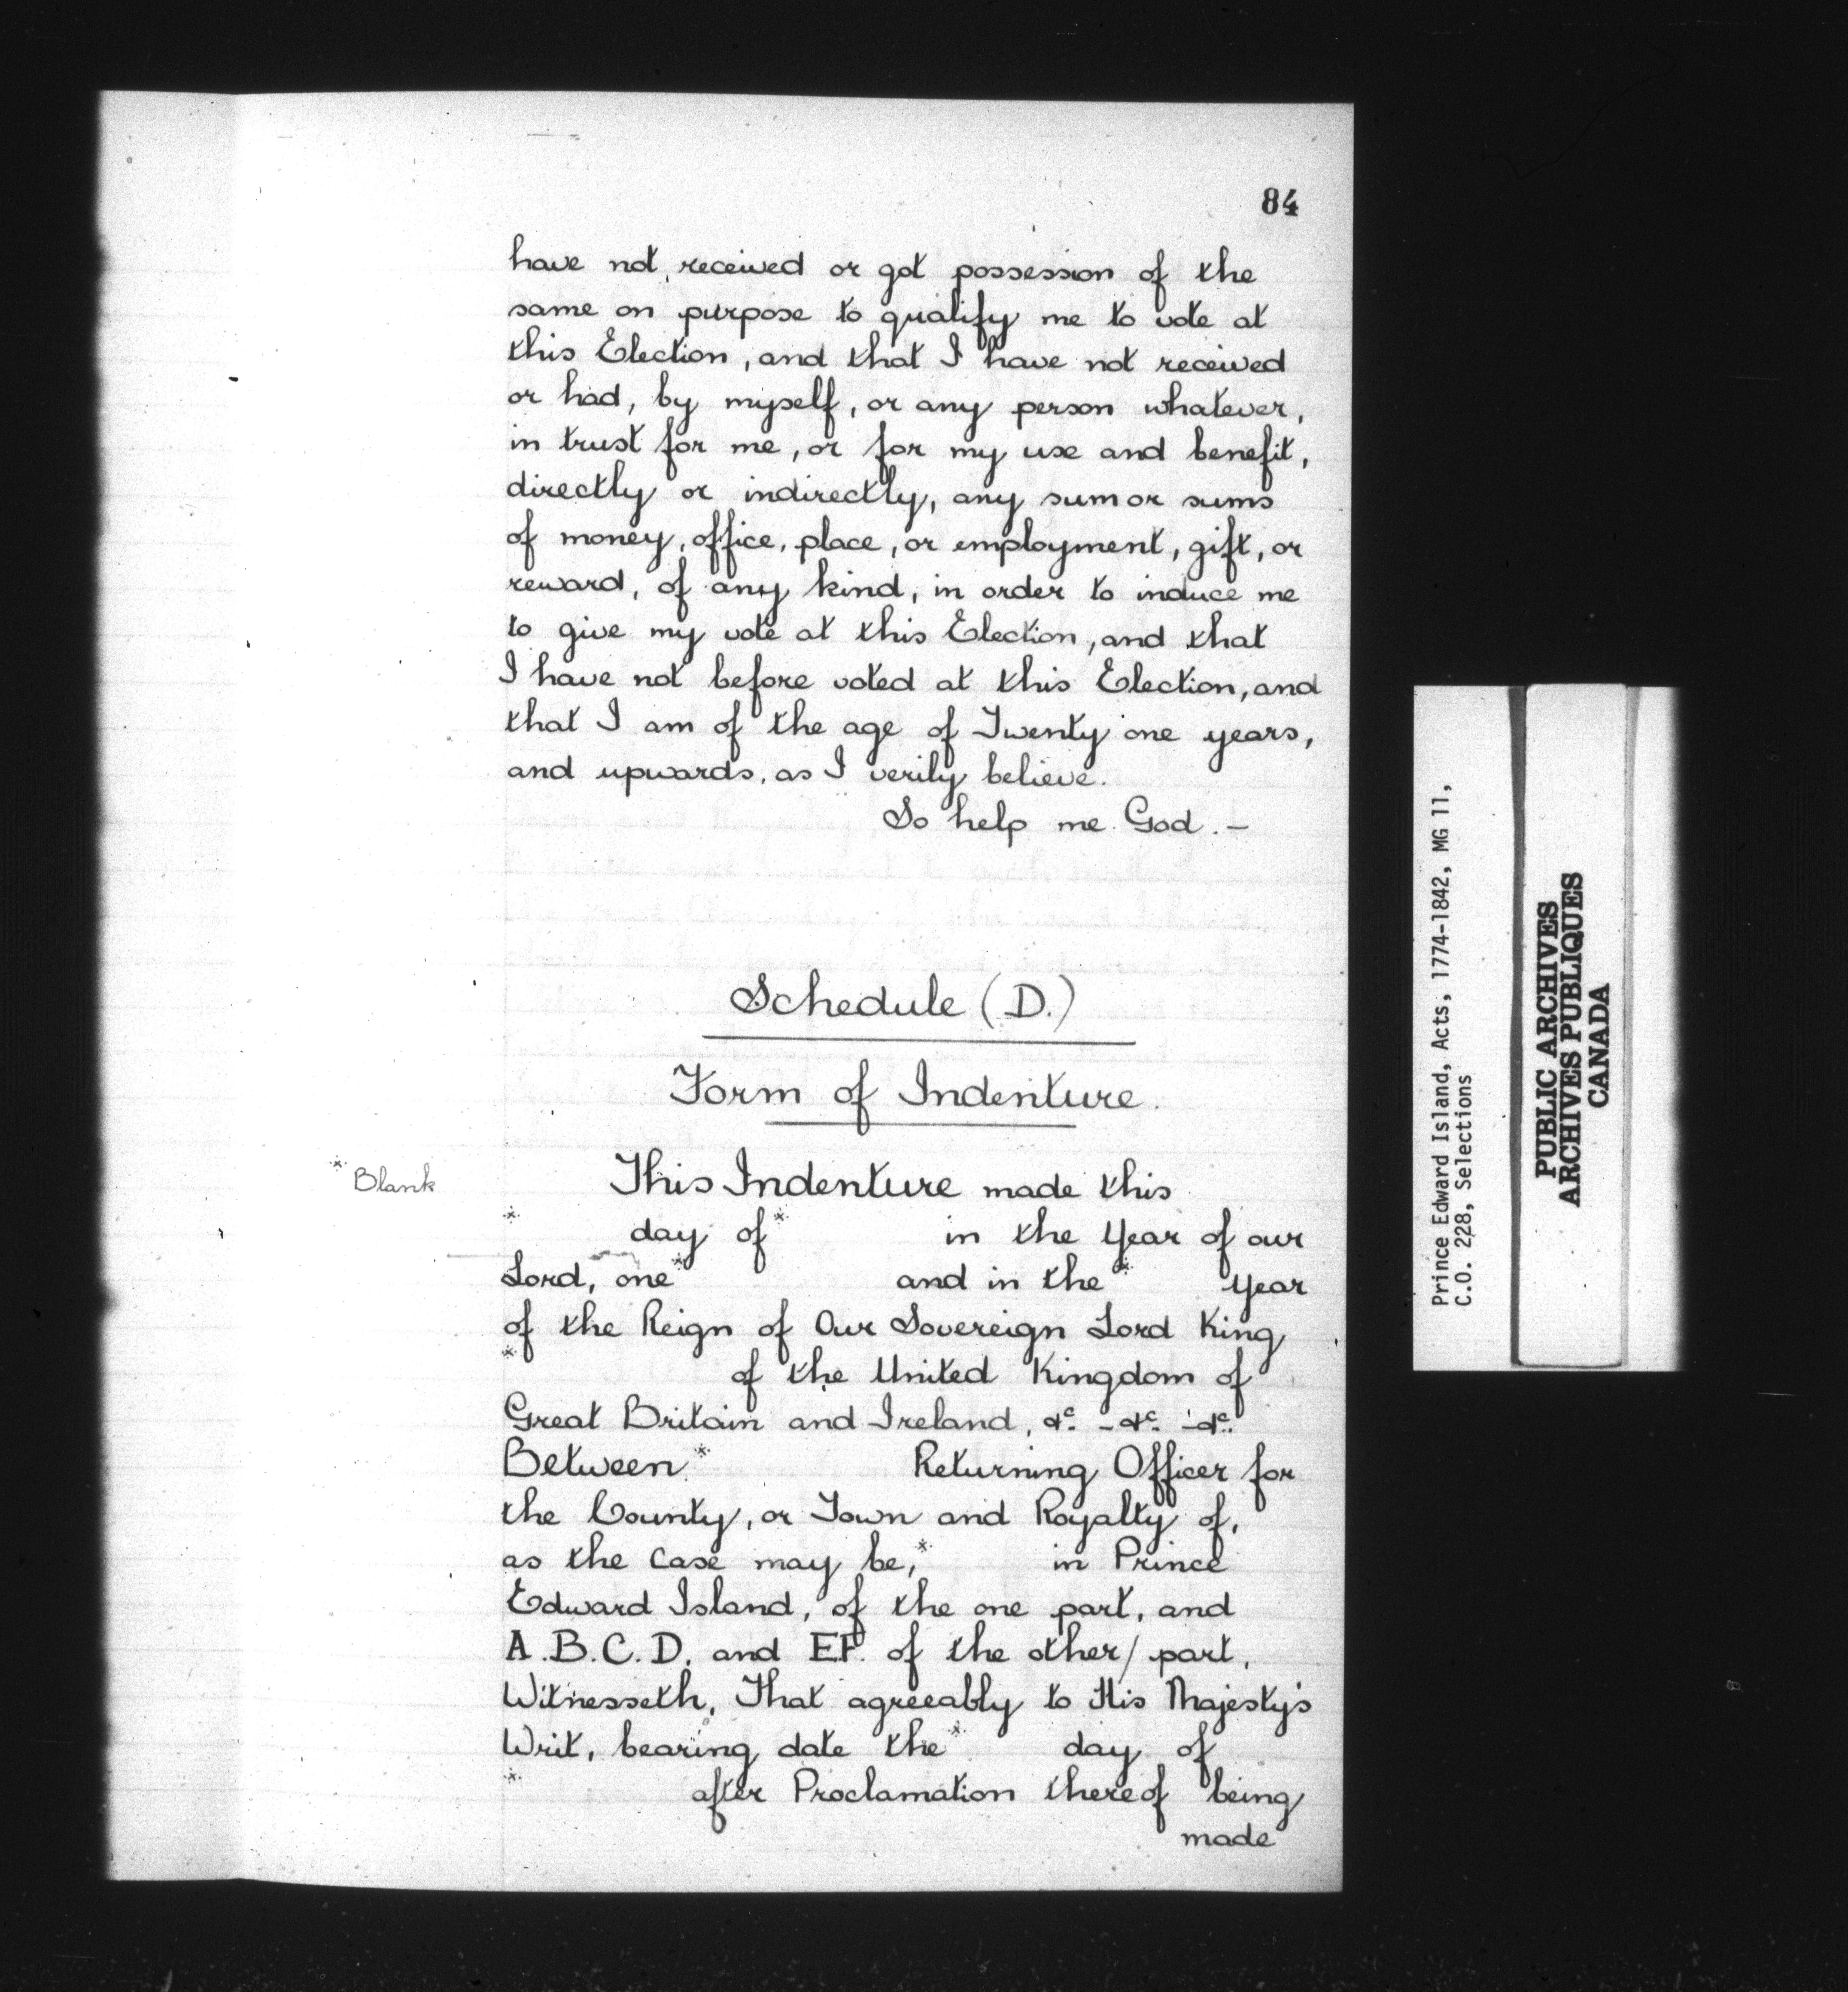 84
have not received or got possession of the
same on purpose to qualify me to vote at
this Election, and that I have not received
or had, by myself, or any person whatever,
in trust for me, or for my use and benefit,
directly or indirectly, any sum or sums
of money, office, place, or employment, gift, or
reward, of any kind, in order to induce me
to give my vote at this Election, and that
I have not before voted at this Election, and
that I am of the age of Twenty one years,
and upwards, as I verily believe.
So help me God. –
Schedule (D.)
Form of Indenture.
* Blank
This Indenture made this
* day of * in the Year of our
Lord, one * and in the * Year
of the Reign of Our Sovereign Lord King
* of the United Kingdom of
Great Britain and Ireland, &c. - &c. - &c.
Between * Returning Officer for
the County, or Town and Royalty of,
as the case may be, * in Prince
Edward Island, of the one part, and
A.B.C.D. and EF. of the other/ part,
Witnesseth, That agreeably to His Majesty's
Writ, bearing date the * day of
* after Proclamation thereof being
made
Prince Edward Island, Acts, 1774-1842, MG 11,
C.O. 228, Selections
PUBLIC ARCHIVES
ARCHIVES PUBLIQUES
CANADA